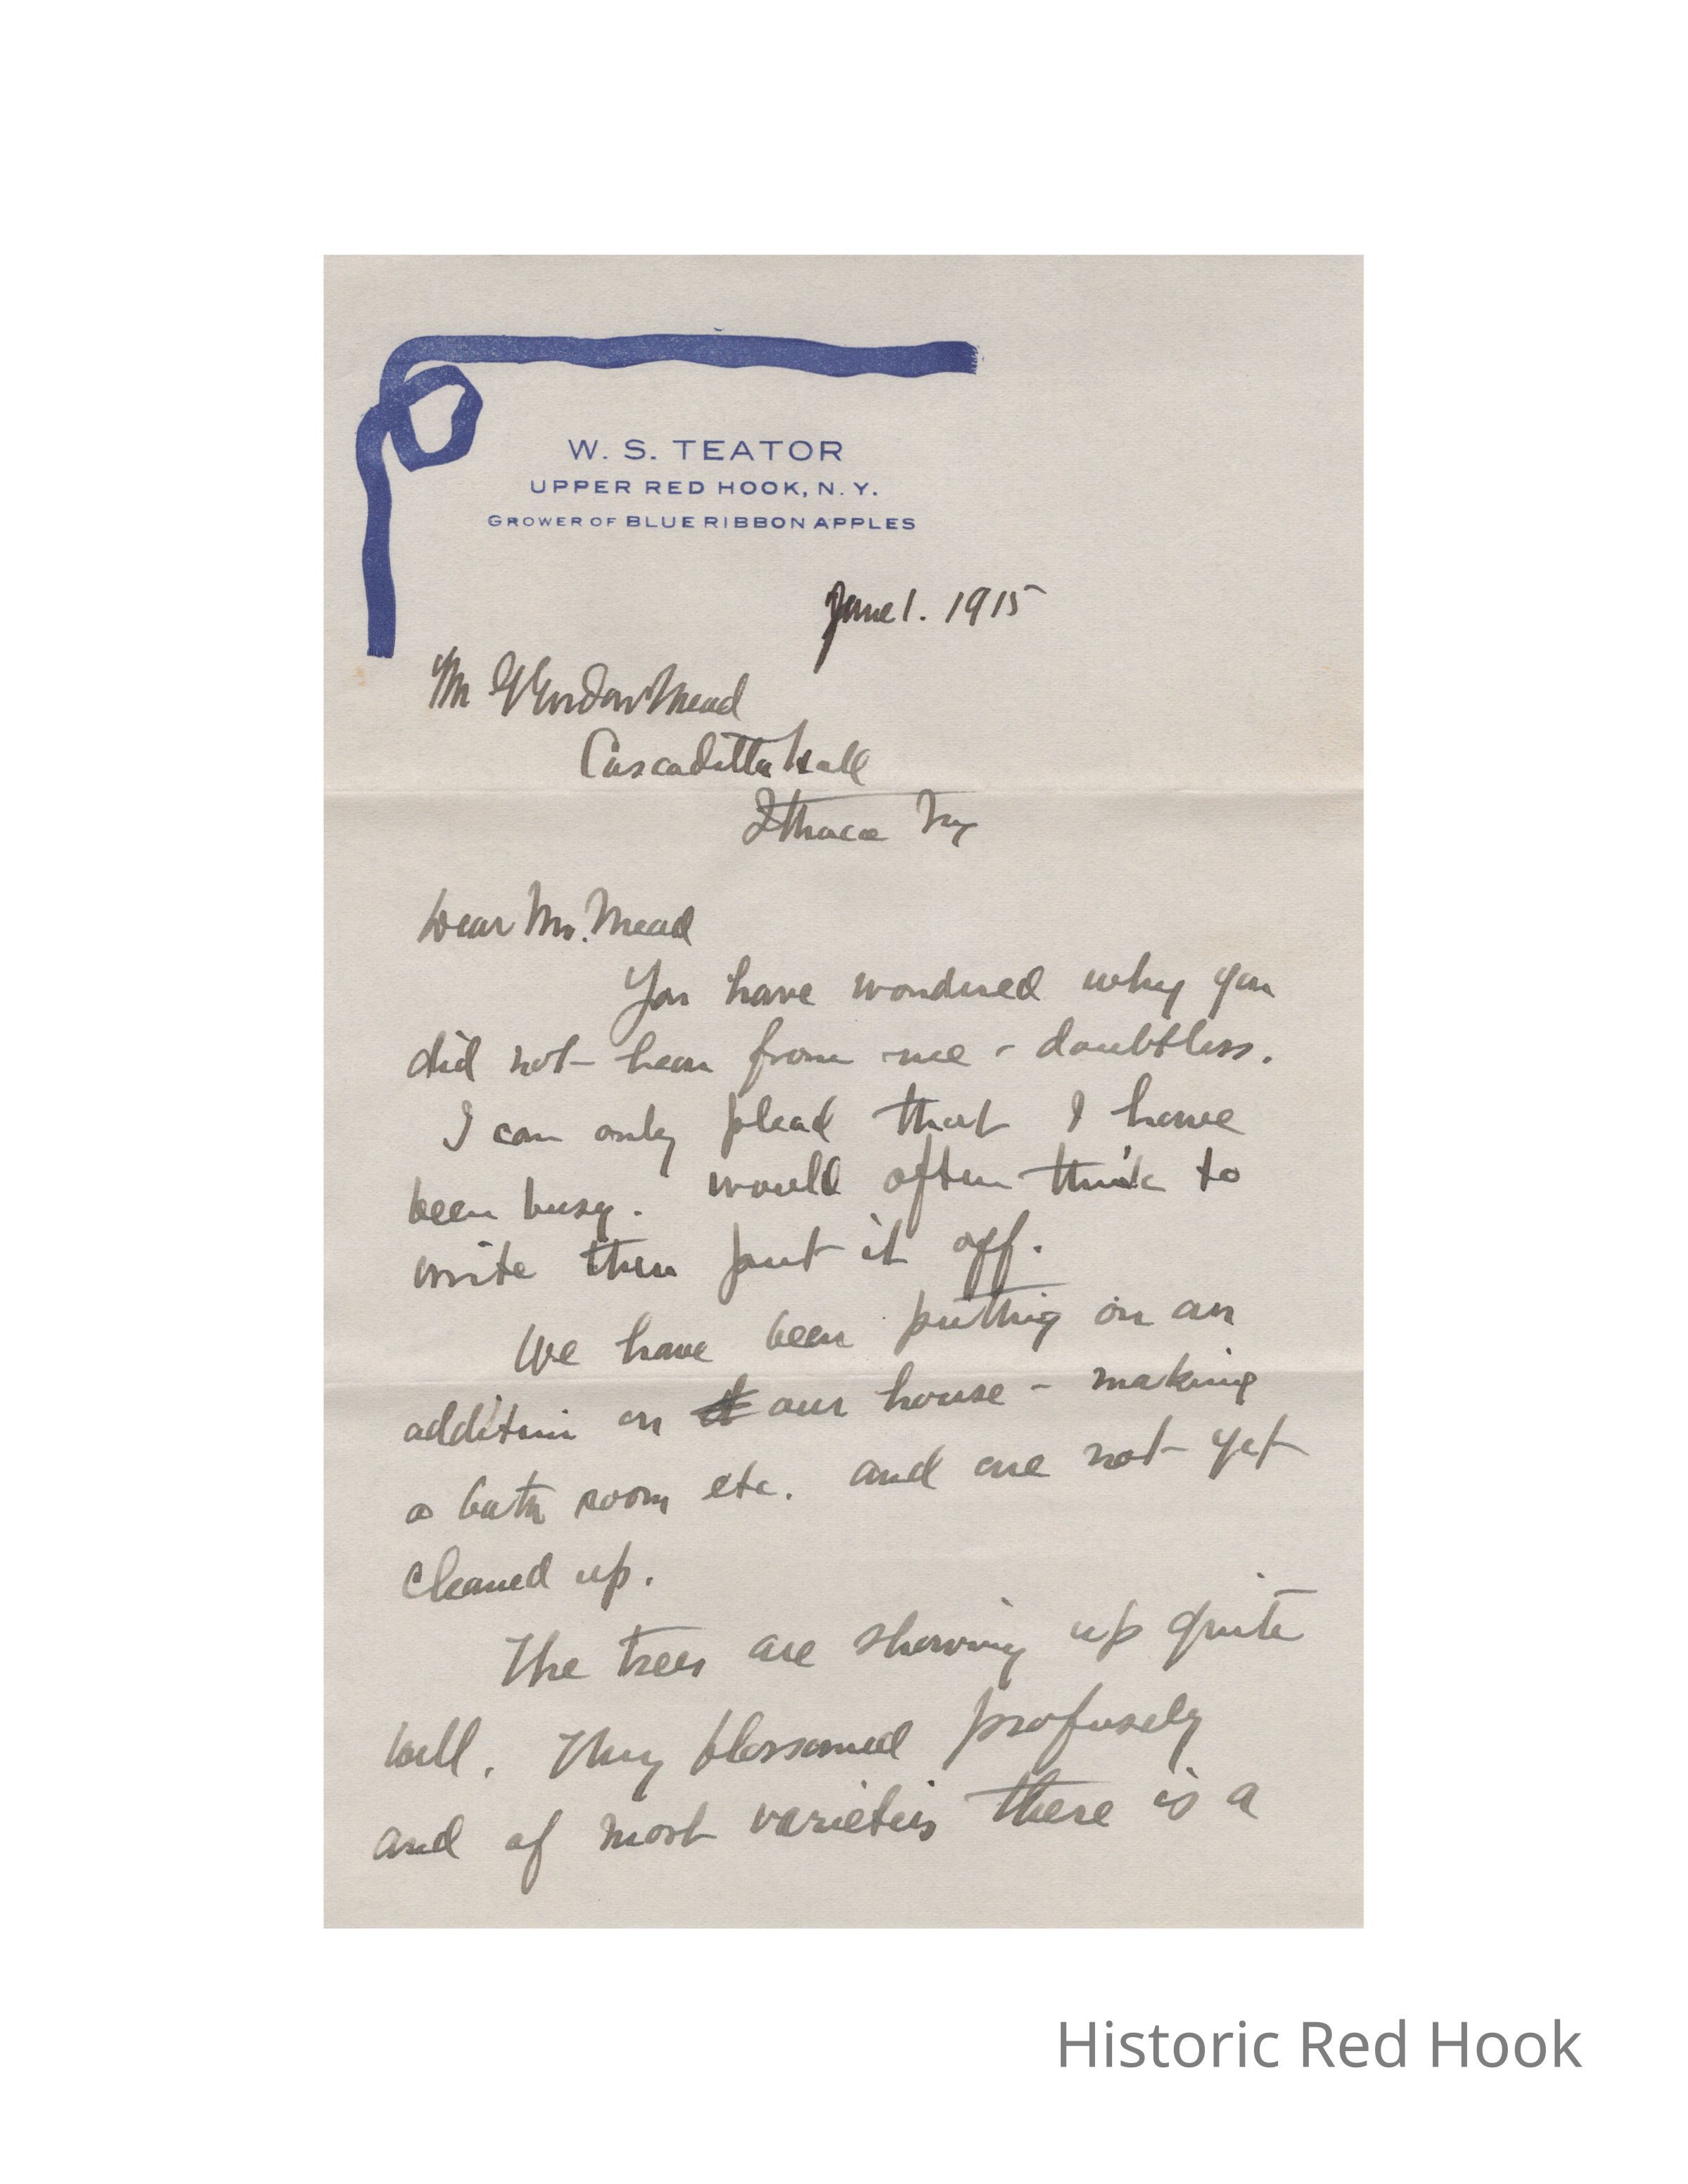 W. S. TEATOR
UPPER RED HOOK, N. Y.
GROWER OF BLUE RIBBON APPLES
June 1. 1915
Mr Mead
Cascadilla Hall
Ithaca Ny
Dear Mr. Mead
You have wondered why you
did not hear from me - doubtless.
I can only plead that I have
been busy. would often think to
write then put it off.
We have been putting on an
addition on our house - making
a bath room etc. and are not yet
cleaned up.
The trees are showing up quite
well. They blossomed profusely
and of most varieties there is a
Historic Red Hook